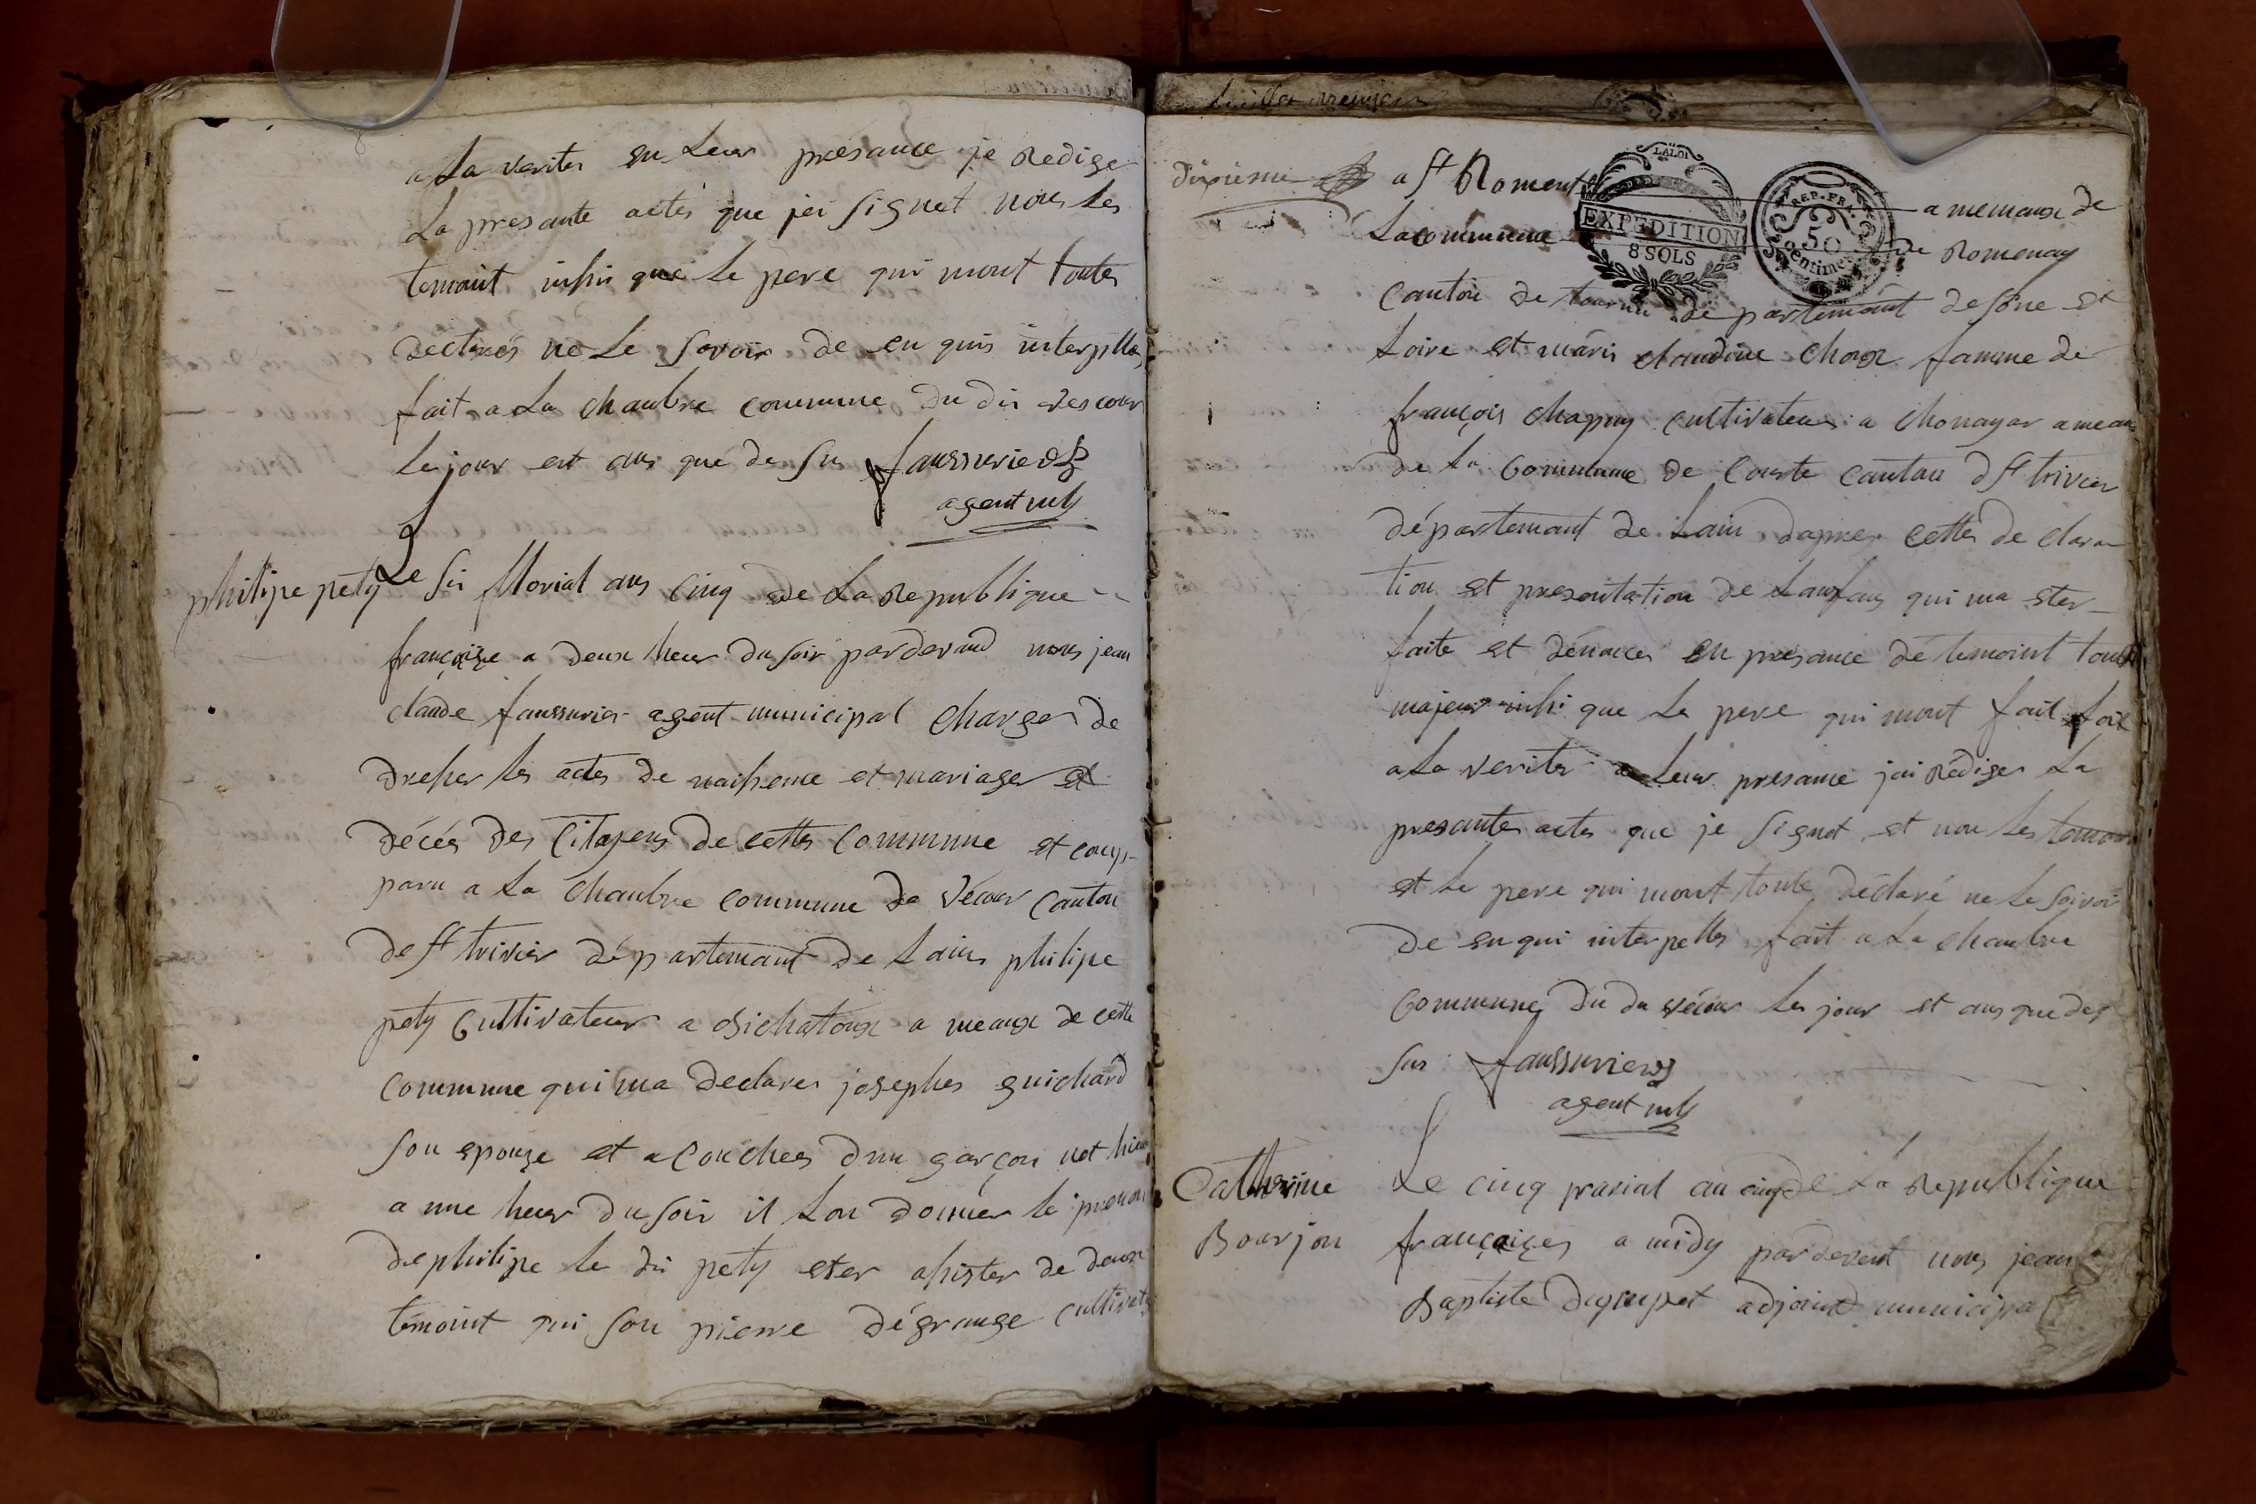 a La verités en Leur présance je Redige
La presante actés que jei signet nons Les
temoint insis que Le pere qui mont toutes
déclarés ne Le savoir de en quis interpelles
fait a La chanbre commune du dit vescour
Le jour ent ans que de sus faussurier
agent mpl
philipe pety
Le sis florial ans cinq de La Republique
françoize a deux heur du soir pardevand nous jean
claude faussurier agent municipal charger de
dresser les actes de naissence et mariager et
décés des Citoyens de cette Commune et comp-
paru a La chanbre commune de vécour canton
de st trivier département de Lains philipe
pety Cultivateur a Bichatoux a meaux de cette
Commune qui ma declares josephes guichard
son epouze et acouchees dun garçon net hier
a une heur du soir il Lon donnér le prenom
de philipe le dit pety eter assister de deux
témoint qui son pierre dégrange cultivat
dixieme
a st Roment a meneaux de
La commune de Romenay
Canton de tournu département de sone et
Loire et marie claudine chaux famme de
françois chapuy cultivateur a chonayar ameau
de La Commune de Courte canton d st trivier
département de Lain dapres cettes de clara-
tion et presentation de Lanfans qui ma eter
faite et dénonces en presance dé temoint touts
majeur insi que Le pere qui mont fait foit
a La verités a Leur presance jai rédiger La
presantes actes que je signet et non Les temoin
et Le pere qui mont toute déclaré ne Le savoir
de en qui interpelles fait a La chanbre
Commune du du vécour Les jour et ans que des
sus faussurier
agent mpl
Catherine
Bourjon
Le cinq prarial an cinq de La Republique
françoiçes a midy pardevent nous jean
Baptiste Dupupet adjoint municipa
LALOI
EXPEDITION
8 SOLS
REP. FRA.
50
centimes